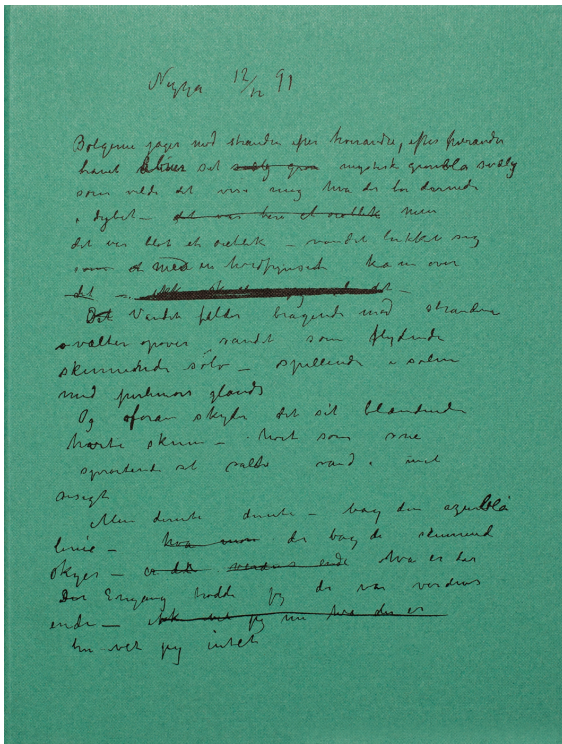 12/12 91
Bølgerne jager mod stranden efter hverandre, efter hverandre
havet åbner sit svælg grøn mystisk grønblå svælg
som vilde det vise mig hva der bor dernede
i dybet – det var bare et øieblikk men
det var blot et øieblik – vandet lukket sig
som med en
det –
Det Vandet falder bragende mod stranden
vælter opover sandet som flydende
skummende sølv – spillende i solen
med purpurens glands
Og foran skyder det sit blændende
hvite skum – hvit som sne
sprøitende salte vand i mit
ansigt
Men derute derute – bag den azurblå
linie – hva der bag de skinnende
skyer – er det verdens ende hva er der
Der Engang trodde jeg der var verdens
ende – jeg nu hva der er
nu vet jeg intet